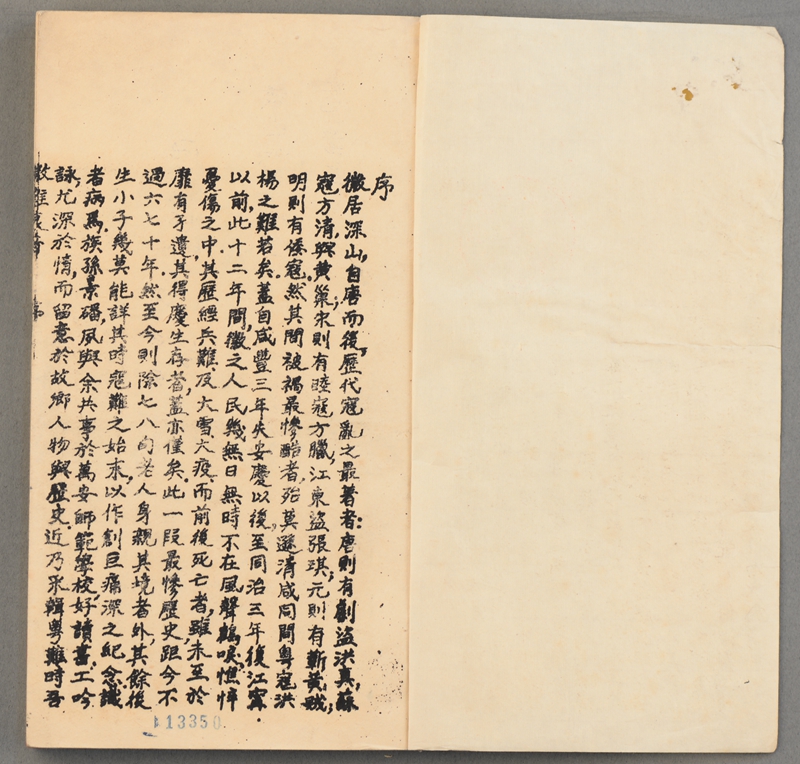 序
徽居深山,自唐而後,歷代寇亂之最著者:唐則有劇盜洪真,蘇
寇方清,與黄巢;宋則有睦寇方臘,江東盜張琪;元則有蘄黄賊;
明則有倭寇。然其間被禍最慘酷者,殆莫遜清咸同間粵寇洪
楊之難若矣。蓋自咸豐三年失安慶以後,至同治三年復江寧
以前,此十二年間,徽之人民幾無日無時不在風聲鶴唳,憔悴
憂傷之中,其歷經兵難及大雪大疫,而前後死亡者,雖未至於
靡有孑遺,其得慶生存者,蓋亦僅矣。此一段最慘歷史,距今不
過六七十年,然至今則除七八旬老人身親其境者外,其餘後
生小子幾莫能詳其時寇難之始末,以作創巨痛深之紀念識
者病焉。族孫景磻,夙與余共事於萬安師範學校,好讀書,工吟
詠,尤深於情,而留意於故鄉人物與歷史。近乃采輯粵難時吾
13350